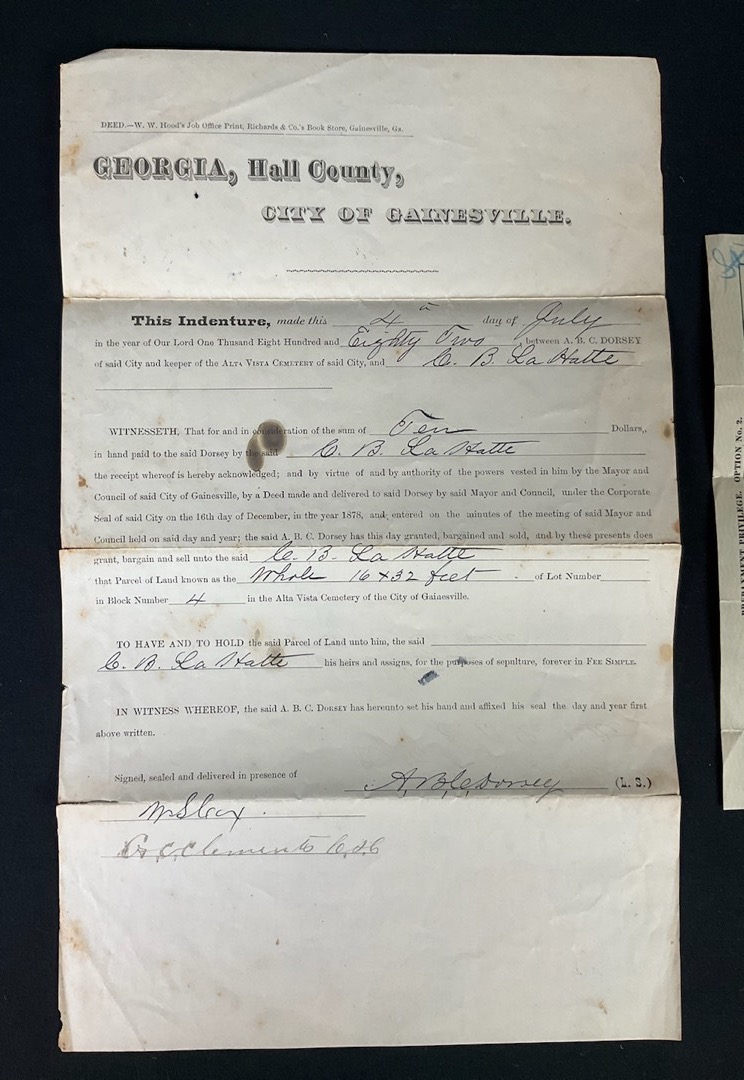 DEED.—W. W. Hood's Job Office Print, Richards & Co.'s Book Store, Gainesville, Ga.
GEORGIA, Hall County,
CITY OF GAINESVILLE.
This Indenture, made this 4 day of July
in the year of Our Lord One Thousand Eight Hundred and Eighty Two, between A. B. C. DORSEY
of said City and keeper of the ALTA VISTA CEMETERY of said City, and C. B. La Hatte
WITNESSETH, That for and in consideration of the sum of Ten Dollars,
in hand paid to the said Dorsey by the said C. B. La Hatte
the receipt whereof is hereby acknowledged; and by virtue of and by authority of the powers vested in him by the Mayor and
Council of said City of Gainesville, by a Deed made and delivered to said Dorsey by said Mayor and Council, under the Corporate
Seal of said City on the 16th day of December, in the year 1878, and entered on the minutes of the meeting of said Mayor and
Council held on said day and year; the said A. B. C. Dorsey has this day granted, bargained and sold, and by these presents does
grant, bargain and sell unto the said C. B. La Hatte
that Parcel of Land known as the Whole 16 x 32 feet of Lot Number
in Block Number 4 in the Alta Vista Cemetery of the City of Gainesville.
TO HAVE AND TO HOLD the said Parcel of Land unto him, the said
C. B. La Hatte his heirs and assigns, for the purposes of sepulture, forever in FEE SIMPLE.
IN WITNESS WHEREOF, the said A. B. C. DORSEY has hereunto set his hand and affixed his seal the day and year first
above written.
Signed, sealed and delivered in presence of
A. B. C. Dorsey (L. S.)
Clements
OPTION No. 2.